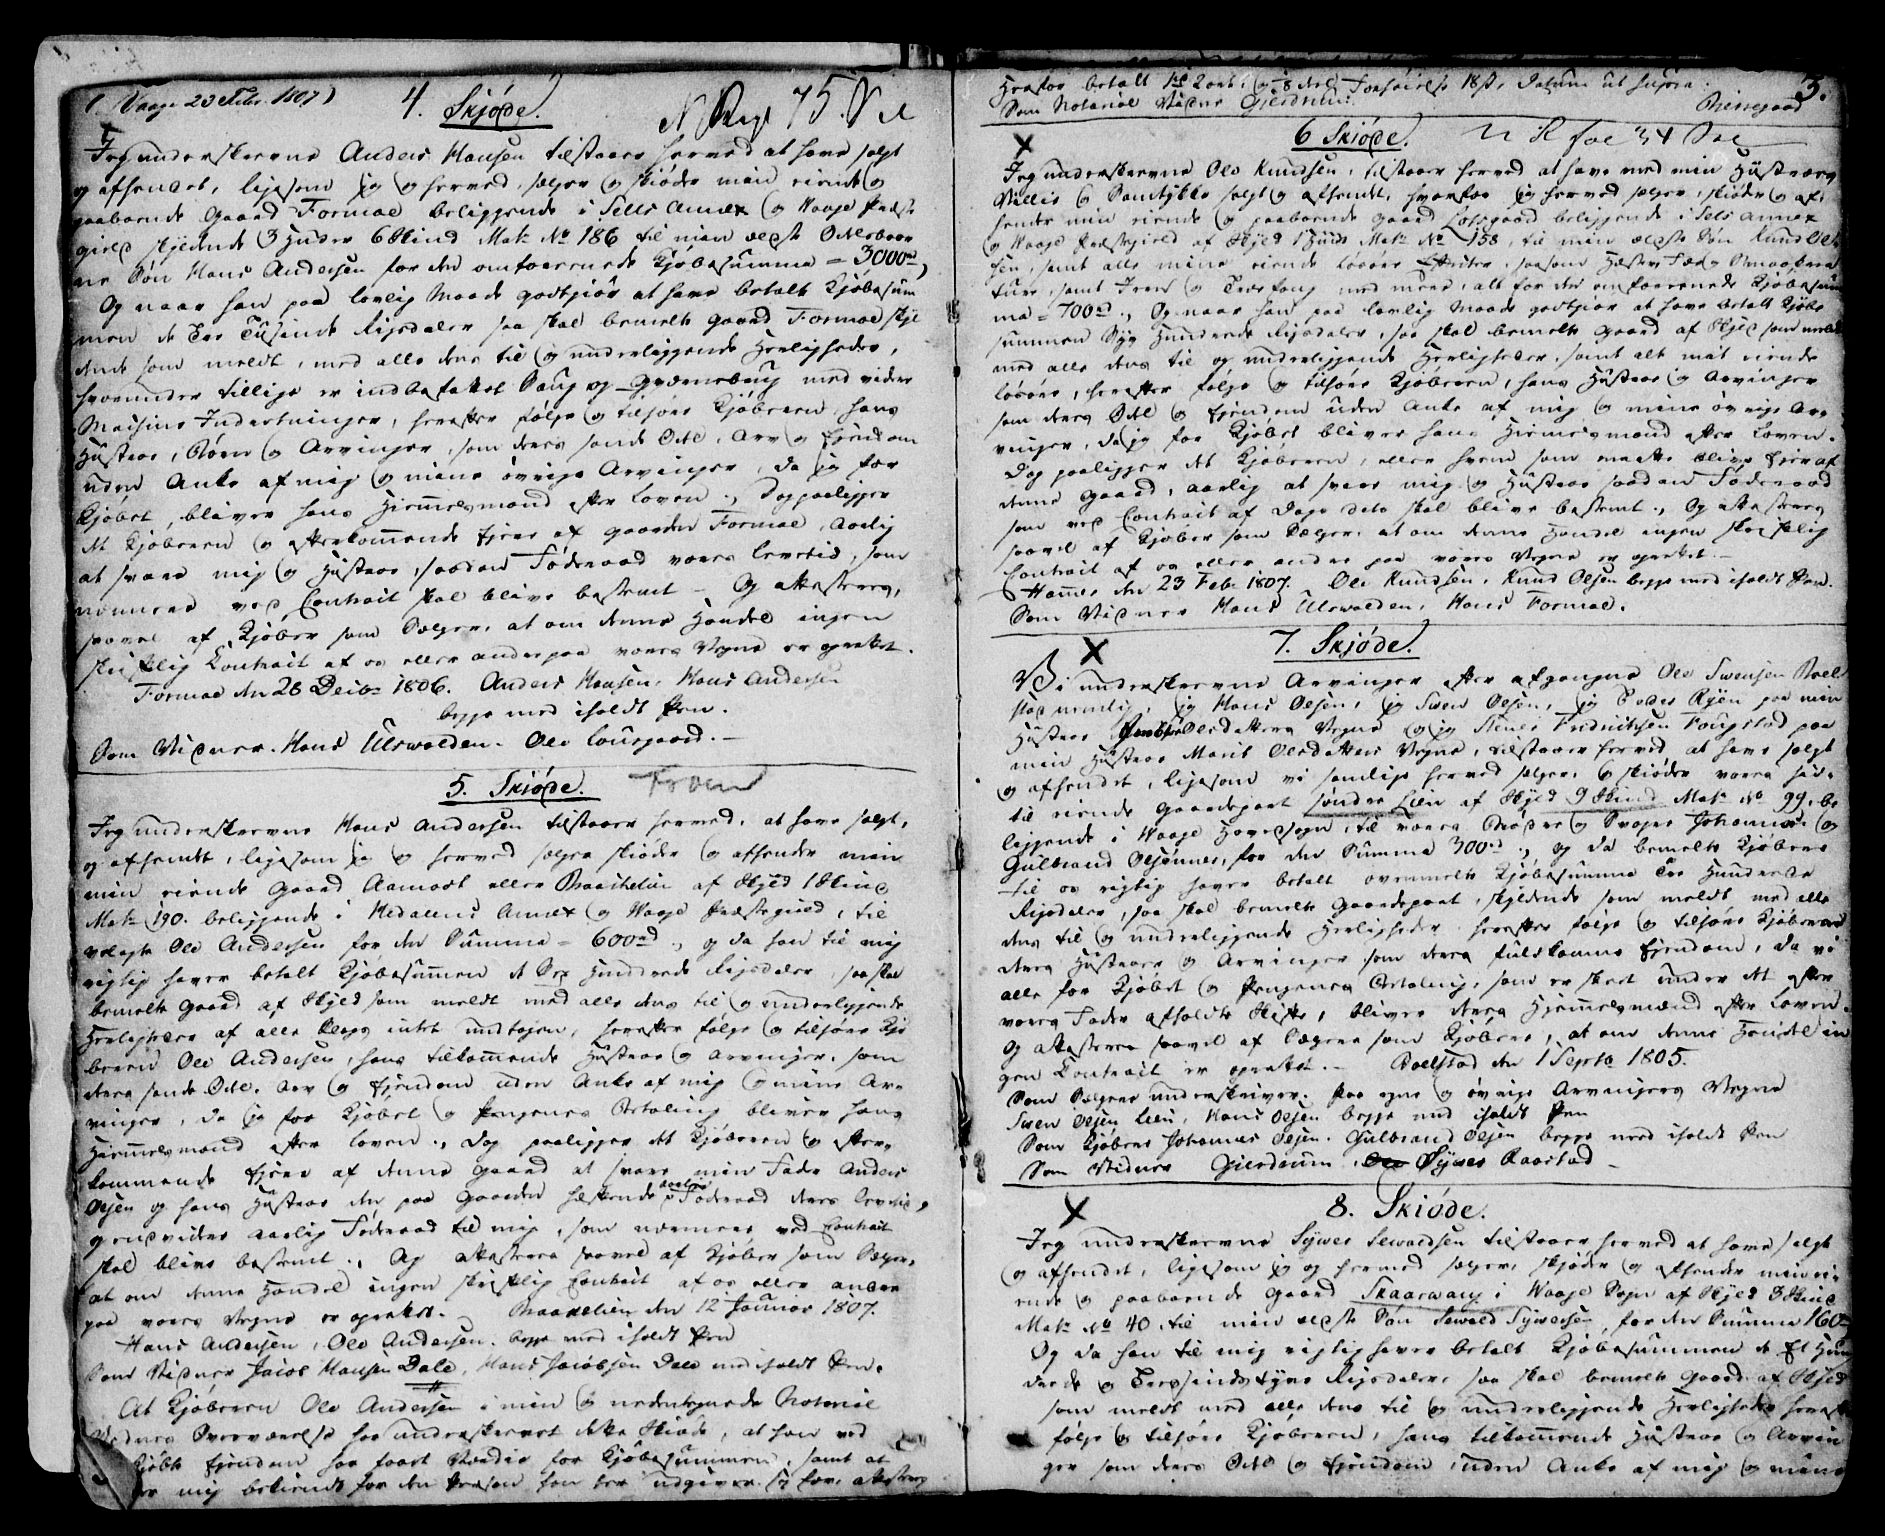 (Vaage 23 Febr. 1807)
4. Skjøde.
N R pag 75. Sel
Jeg underskrevne Anders Hansen tilstaaer herved at have solgt
og afhendet, ligesom jeg og herved sælger og skiøder min eiende og
paaboende Gaard Formoe beliggende i Sells Annex og Vaage Præste
gield skyldende 3 Huder 6 Skind Matr No 186 til min ælste Odelsbaar
ne Søn Hans Andersen for den omforenede Kjøbesumma = 3000rd,
Og naar han paa lovlig Maade godtgiør at have betalt Kjøbesum
men de Tre Tusinde Rigsdaler saa skal bemelte Gaard Formoe skyl
dende som meldt, med alle dens til og underliggende Herligheder,
hvorunder tillige er indbefattet Saug og Qværnebrug med videre
Maskine Indretninger, herefter følge og tilhøre Kjøberen, hans
Hustroe, Børn og Arvinger, som deres sande Odel, Arv og Ejendom
uden Anke af mig og mine øvrige Arvinger, da jeg for
Kjøbet, bliver hans Hiemmelsmand efter Loven., Dog paaligger
det Kjøberen og efterkommende Ejere af Gaarden Formoe, aarlig
at svare mig og Hustroe, saadan Føderaad vores Levetid, som
nærmere ved Contract skal blive bestemt - Og attesteres,
saavel af Kjøber som Sælger, at om denne Handel ingen
skriftlig Contract af os eller andre paa vores Vegne er oprettet.
Formoe den 28 Decbr 1806. Anders Hansen, Hans Andersen
begge med iholdt Pen.
Som Vidner. Hans Ulswolden. Ole Lousgaard. -
5. Skiøde.
Jeg underskrevne Hans Andersen tilstaaer herved, at have solgt,
og afhendt, ligesom jeg og herved sælger skiøder og afhender min
min eiende Gaard Aamodt eller Baachelien af Skyld 1 Skind
Matr 190. beliggende i Hedalens Annex og Vaage Præstegield, til
velagte Ole Andersen for den Summa = 600rd., og da han til mig
rigtig haver betalt Kjøbesummen de Sex Hundrede Rigsdaler, saa skal
bemelte Gaard af Skyld som meldt med alle dens til og underliggende
Herligheder af alle Slags intet undtagen, herefter følge og tilhøre Kjø
beren Ole Andersen, hans tilkommende Hustroe og Arvinger, som
deres sande Odel, Arv og Ejendom uden Anke af mig og mine Ar-
vinger, da jeg for Kjøbet og Pengenes Betaling bliver hans
Hiemmelsmand efter Loven., Dog paaligger det Kjøberen og efter-
kommende Ejere af denne Gaard at svare min Fader Anders
Olsen og hans Hustroe den paa Gaarden heftende aarlige Føderaad deres Levetid,
og endvidere aarlig Føderaad til mig, som nærmere ved Contract
skal blive bestemt., Og attesteres saavel af Kjøber som Sælger,
at om denne Handel ingen skriftlig Contract af os eller andre
paa vores Vegne er oprettet. - Baachelien den 12 Januar 1807.
Hans Andersen, Ole Andersen. begge med iholdt Pen
Som Vidner Jacob Hansen Dale, Hans Jacobsen Dale med iholdt Pen.
At Kjøberen Ole Andersen i min og nedentegnede Notarial
Vidners Overværelse har underskrevet dette Skiøde, at han ved
Kjøbte Ejendom har faaet Værdie for Kjøbesummen, samt at
er mig bekiendt for den Person han sig udgiver for, attesteres
3.
Herfor betalt 1rd 2 ort, og 8 Aarl. Forhøielse 18 s. Datum ut supra
Som Notarial Vidner Gierdrum.
6 Skiøde. N R foe 34 Sel
Jeg underskrevne Ole Knudsen, tilstaaer herved at have med min Hustroes
Villie og Samtykke solgt og afhendt, hvorfor jeg herved sælger, skiøder og af-
hender min eiende og paaboende Gaard Lofsgaard beliggende i Sels Annex
og Vaage Præstegield af Skyld 1 Huds Matr No 158, til min ælste Søn Knud Ol-
sen, samt alle mine eiende Løsøre Effecter, saasom Hæster Fæe og Smaakrea
ture, samt Jern og Træefang med mere, alt for den omforenede Kjøbesum
ma = 700rd., Og naar han paa lovlig Maade godtgiør at have betalt Kjøbe
summen Syv Hundrede Rigsdaler, saa skal bemelte Gaard af Skyld som meldt
med alle dens til og underliggende Herligheder, samt alt mit eiende
Løsøre, herefter følge og tilhøre Kjøberen, hans Hustroe og Arvinger
som deres Odel og Ejendom uden Anke af mig og mine øvrige Ar-
vinger, da jeg for Kjøbet bliver hans Hiemmelsmand efter Loven.
Dog paaligger det Kjøberen, eller hvem som maatte blive Ejer af
denne Gaard, aarlig at svare mig og Hustroe saadan Føderaad
som ved Contract af Dags Dato skal blive bestemt., Og attesteres
saavel af Kjøber som Sælger, at om denne Handel ingen skriftlig
Contract af os eller andre paa vores Vegne er oprettet. -
Hammer den 23 Feb: 1807. Ole Knudsen, Knud Olsen begge med iholdt Pen.
Som Vidner Hans Ulswolden, Hans Formoe.
7. Skjøde.
Vi underskrevne Arvinger efter afgangne Ole Swensen Boel
stad nemlig, jeg Hans Olsen, jeg Swen Olsen, jeg Peder Ryen paa min
Hustroe Olsdatters Vegne og jeg Stener Fredrichsen Fougstad paa
min Hustroe Marit Olsdatters Vegne, tilstaaer herved at have solgt
og afhendet, ligesom vi samtlige herved sælger, og skiøder vores hid-
til eiende Gaardepart søndre Lien af Skyld 9 Skind Matr No 99, be
liggende i Vaage Hovedsogn, til vores Brødre og Svoger Johannes og
Gulbrand Olsønner, for den Summa 300rd., og da bemelte Kjøbere
til os rigtig haver betalt ovenmelte Kjøbesumma Tre Hundrede
Rigsdaler, saa skal bemelte Gaardepart, skyldende som meldt med alle
dens til og underliggende Herligheder herefter følge og tilhøre Kjøberne
deres Hustroer og Arvinger som deres fuldkomne Ejendom, da vi
alle for Kjøbet og Pengenes Betaling, som er skeet under det efter
vores Fader afholdte Skifte, bliver deres Hiemmelsmænd efter Loven.
Og attesteres saavel af Sælgere som Kjøbere, at om denne Handel in
gen Contract er oprettet. - Boelstad den 1 Septbr 1805.
Som Sælgere underskriver. Paa egne og øvrige Arvingers Vegne
Swen Olsen Lien, Hans Olsen begge med iholdt Pen
Som Kjøbere Johannes Olsen. Gulbrand Olsen begge med iholdt Pen
Som Vidner Gierdrum, Sywer Raastad -
8. Skiøde.
Jeg underskrevne Sywer Sewaldsen tilstaaer herved at have solgt
og afhendet, ligesom jeg og herved sælger, skjøder og afhender min ei-
ende og paaboende Gaard Skaarwang i Waage Sogn af Skyld 3 Skind
Matr No 40 til min ælste Søn Sewald Sywersen, for den Summa 160
Og da han til mig rigtig haver betalt Kjøbesummen de Et Hun
drede og Tresindstyve Rigsdaler, saa skal bemelte Gaard af Skyld
som meldt med alle dens til og underliggende Herligheder herefter
følge og tilhøre Kjøberen, hans tilkommende Hustroe og Arvin
ger som deres Odel og Ejendom, uden Anke af mig og mine